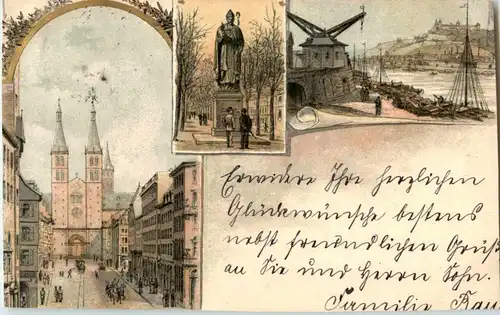 Erwidere Ihre herzlichen
Glückwünsche bestens
nebst freundlichen Grüß
an Sie und Herrn Sohn.
Familie